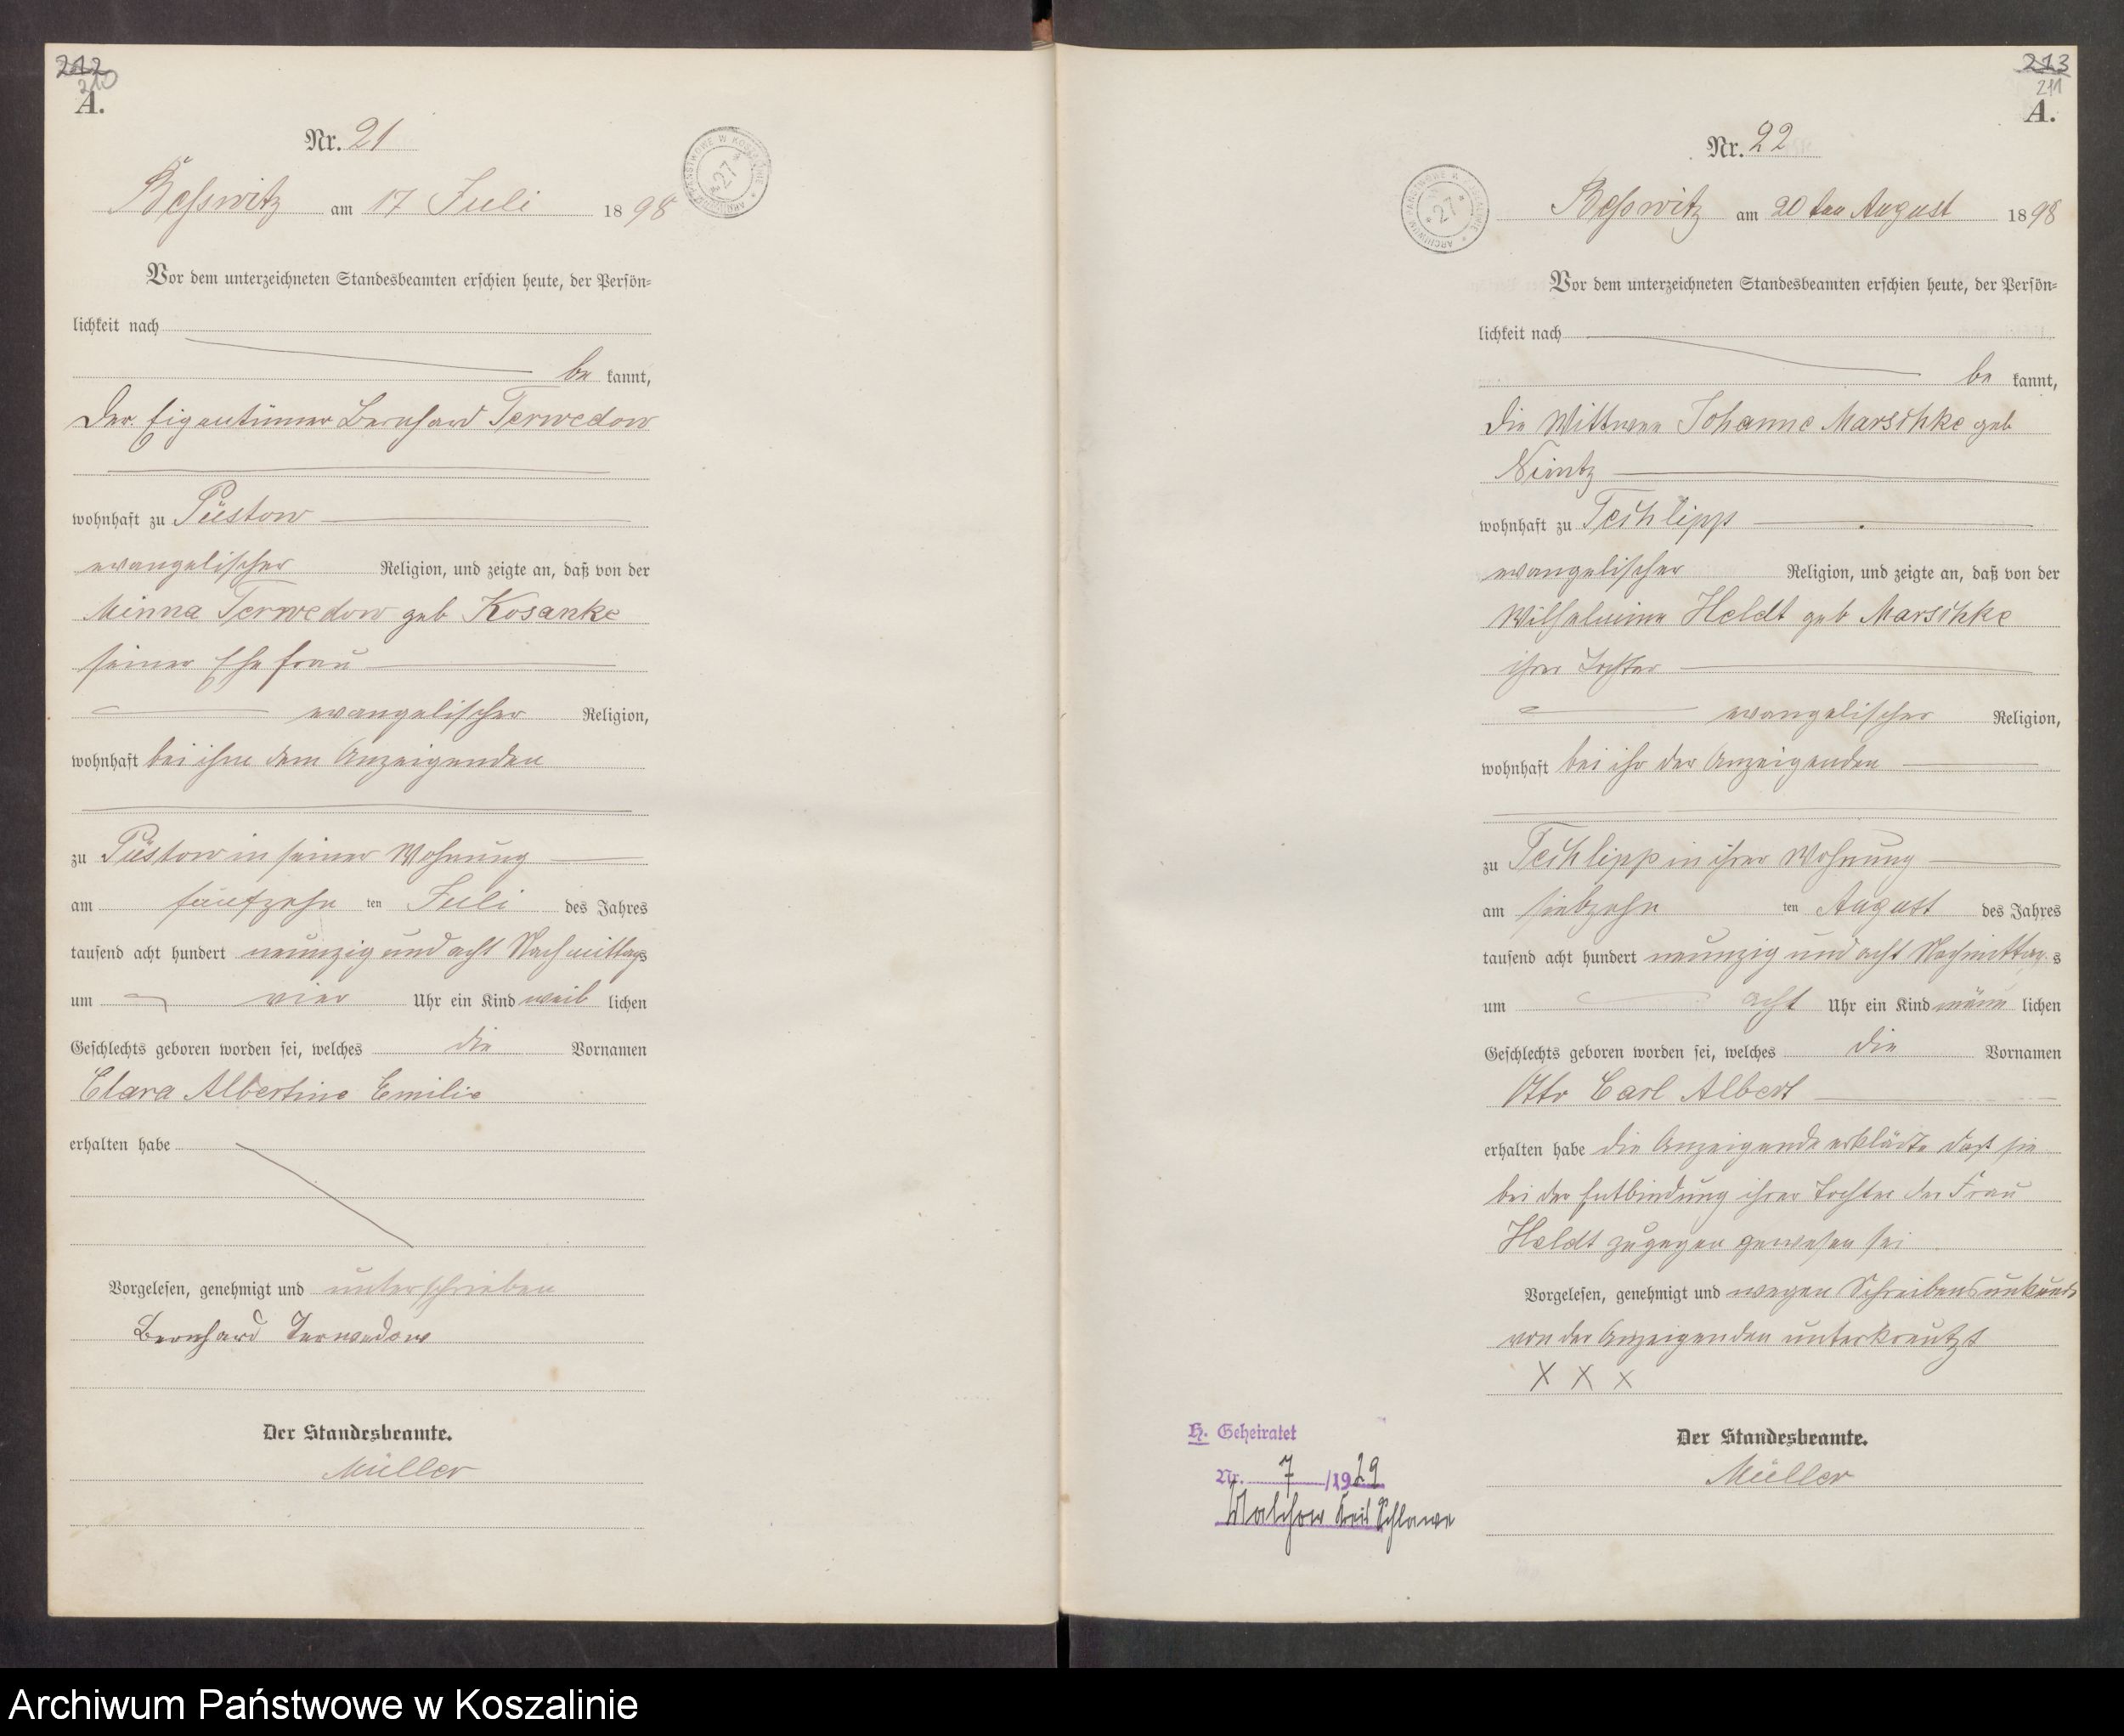 212
210
A.
Nr. 21
Beßwitz am 17 Juli 1898
ARCHIWUM PAŃSTWOWE W KOSZALINIE * 27 *
Vor dem unterzeichneten Standesbeamten erschien heute, der Persön-
lichkeit nach
be kannt,
der Eigentümer Bernhard Terwedow
wohnhaft zu Püstow
evangelischer Religion, und zeigte an, daß von der
Minna Terwedow geb Kosanke
seiner Ehefrau
evangelischer Religion,
wohnhaft bei ihm dem Anzeigenden
zu Püstow in seiner Wohnung
am fünfzehn ten Juli des Jahres
tausend acht hundert neunzig und acht Nachmittags
um vier Uhr ein Kind weib lichen
Geschlechts geboren worden sei, welches die Vornamen
Clara Albertine Emilie
erhalten habe
Vorgelesen, genehmigt und unterschrieben
Bernhard Terwedow
Der Standesbeamte.
Müller
213
211
A.
Nr. 22
ARCHIWUM PAŃSTWOWE W KOSZALINIE * 27 *
Beßwitz am 20 ten August 1898
Vor dem unterzeichneten Standesbeamten erschien heute, der Persön-
lichkeit nach
be kannt,
die Wittwe Johanne Marschke geb
Nintz
wohnhaft zu Techlipp
evangelischer Religion, und zeigte an, daß von der
Wilhelmine Heldt geb Marschke
ihrer Tochter
evangelischer Religion,
wohnhaft bei ihr der Anzeigenden
zu Techlipp in ihrer Wohnung
am siebzehn ten August des Jahres
tausend acht hundert neunzig und acht Nachmittag s
um acht Uhr ein Kind männ lichen
Geschlechts geboren worden sei, welches die Vornamen
Otto Carl Albert
erhalten habe die Anzeigende erklärte daß sie
bei der Entbindung ihrer Tochter der Frau
Heldt zugegen gewesen sei
Vorgelesen, genehmigt und wegen Schreibensunkunde
von der Anzeigenden unterkreutzt
X X X
Der Standesbeamte.
Müller
H. Geheiratet
Nr. 7 /1929
Malchow Kreis Schlawe
Archiwum Państwowe w Koszalinie